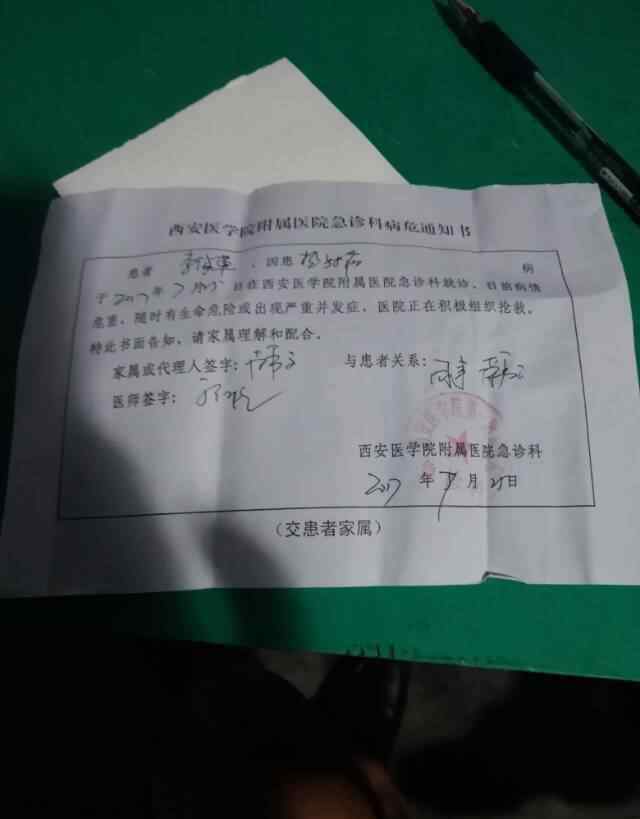 西安医学院附属医院急诊科病危通知书
患者 ，因患 病
于 2017 年 7 月 日在西安医学院附属医院急诊科就诊，目前病情
危重，随时有生命危险或出现严重并发症，医院正在积极组织抢救。
特此书面告知，请家属理解和配合。
家属或代理人签字： 与患者关系：
医师签字：
西安医学院附属医院急诊科
2017 年 7 月 25 日
（交患者家属）